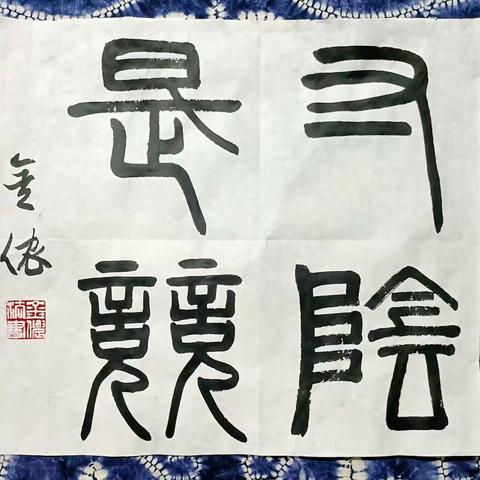 寸陰
是競
金侬